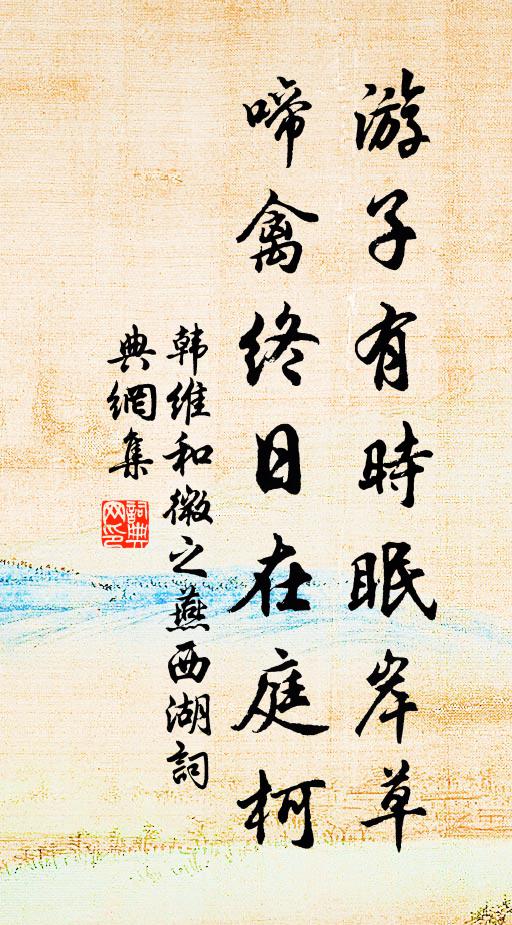 游子有時眠岸草
啼禽终日在庭柯
韩维和微之燕西湖詞
典網集
詞典網印